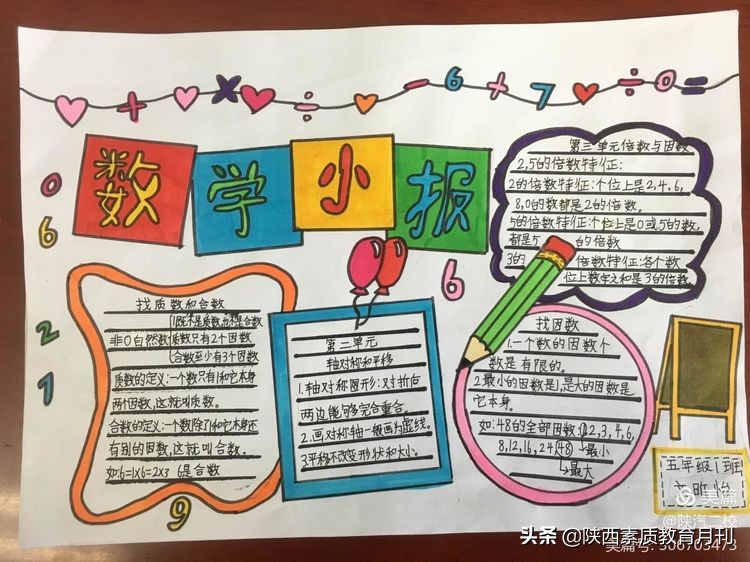 数学小报
第三单元倍数与因数
2,5的倍数特征:
2的倍数特征:个位上是2,4,6,
8,0的数都是2的倍数。
5的倍数特征:个位上是0或5的数,
都是5的倍数
3的倍数特征:各个数
位上数字之和是3的倍数。
找质数和合数
1既不是质数,也不是合数
非0自然数 质数只有2个因数
合数至少有3个因数
质数的定义:一个数只有1和它本身
两个因数,这就叫质数。
合数的定义:一个数除了1和它本身还
有别的因数,这就叫合数。
如:6=1x6=2x3 6是合数
第二单元
轴对称和平移
1.轴对称图形:对折后
两边能够完合重合。
2.画对称轴一般画为虚线。
3.平移不改变形状和大小。
找因数
1.一个数的因数个
数是有限的。
2.最小的因数是1,是大的因数是
它本身。
如:48的全部因数:1,2,3,4,6,
8,12,16,24,48
最小
最大
五年级1班
美篇
@陕汽二校
头条 @陕西素质教育月刊
美篇号: 306703473
0
6
2
1
9
6
+ × ÷ - 6 + 7 ÷ 0 =